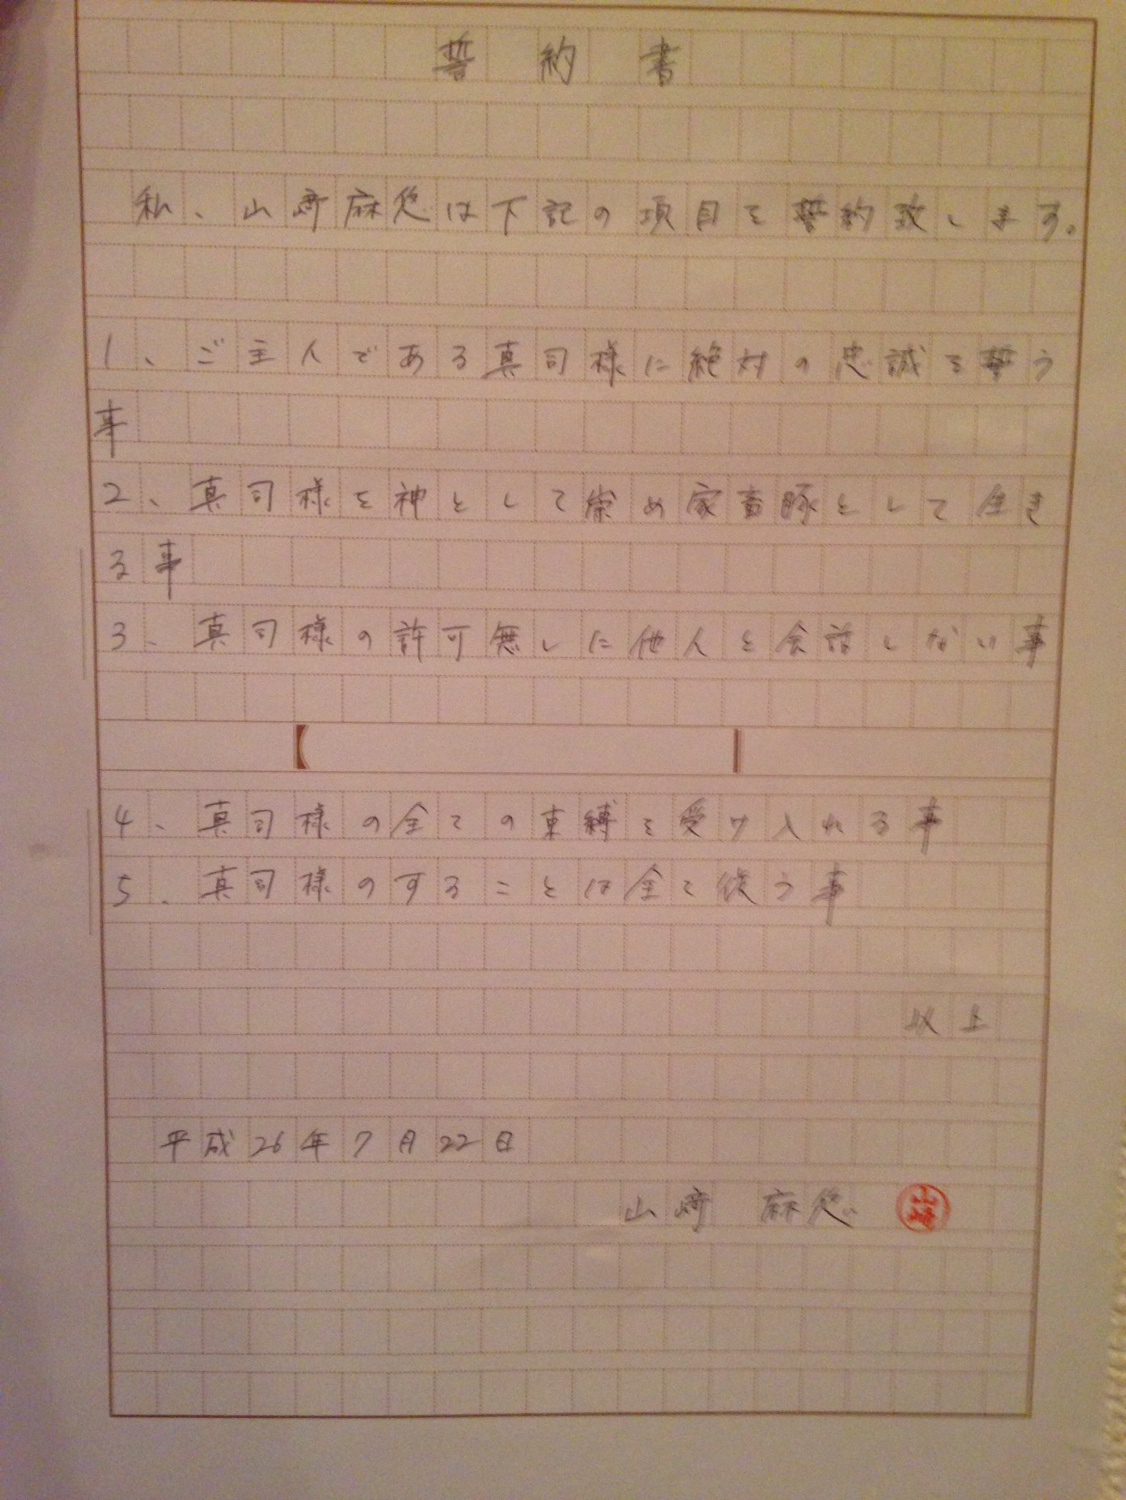 誓約書
私、山﨑麻悠は下記の項目を誓約致します。
1、ご主人である真司様に絶対の忠誠を誓う
事
2、真司様を神として崇め家畜豚として生き
る事
3、真司様の許可無しに他人と会話しない事
4、真司様の全ての束縛を受け入れる事
5、真司様のすることは全て従う事
以上
平成26年7月22日
山﨑 麻悠 山﨑